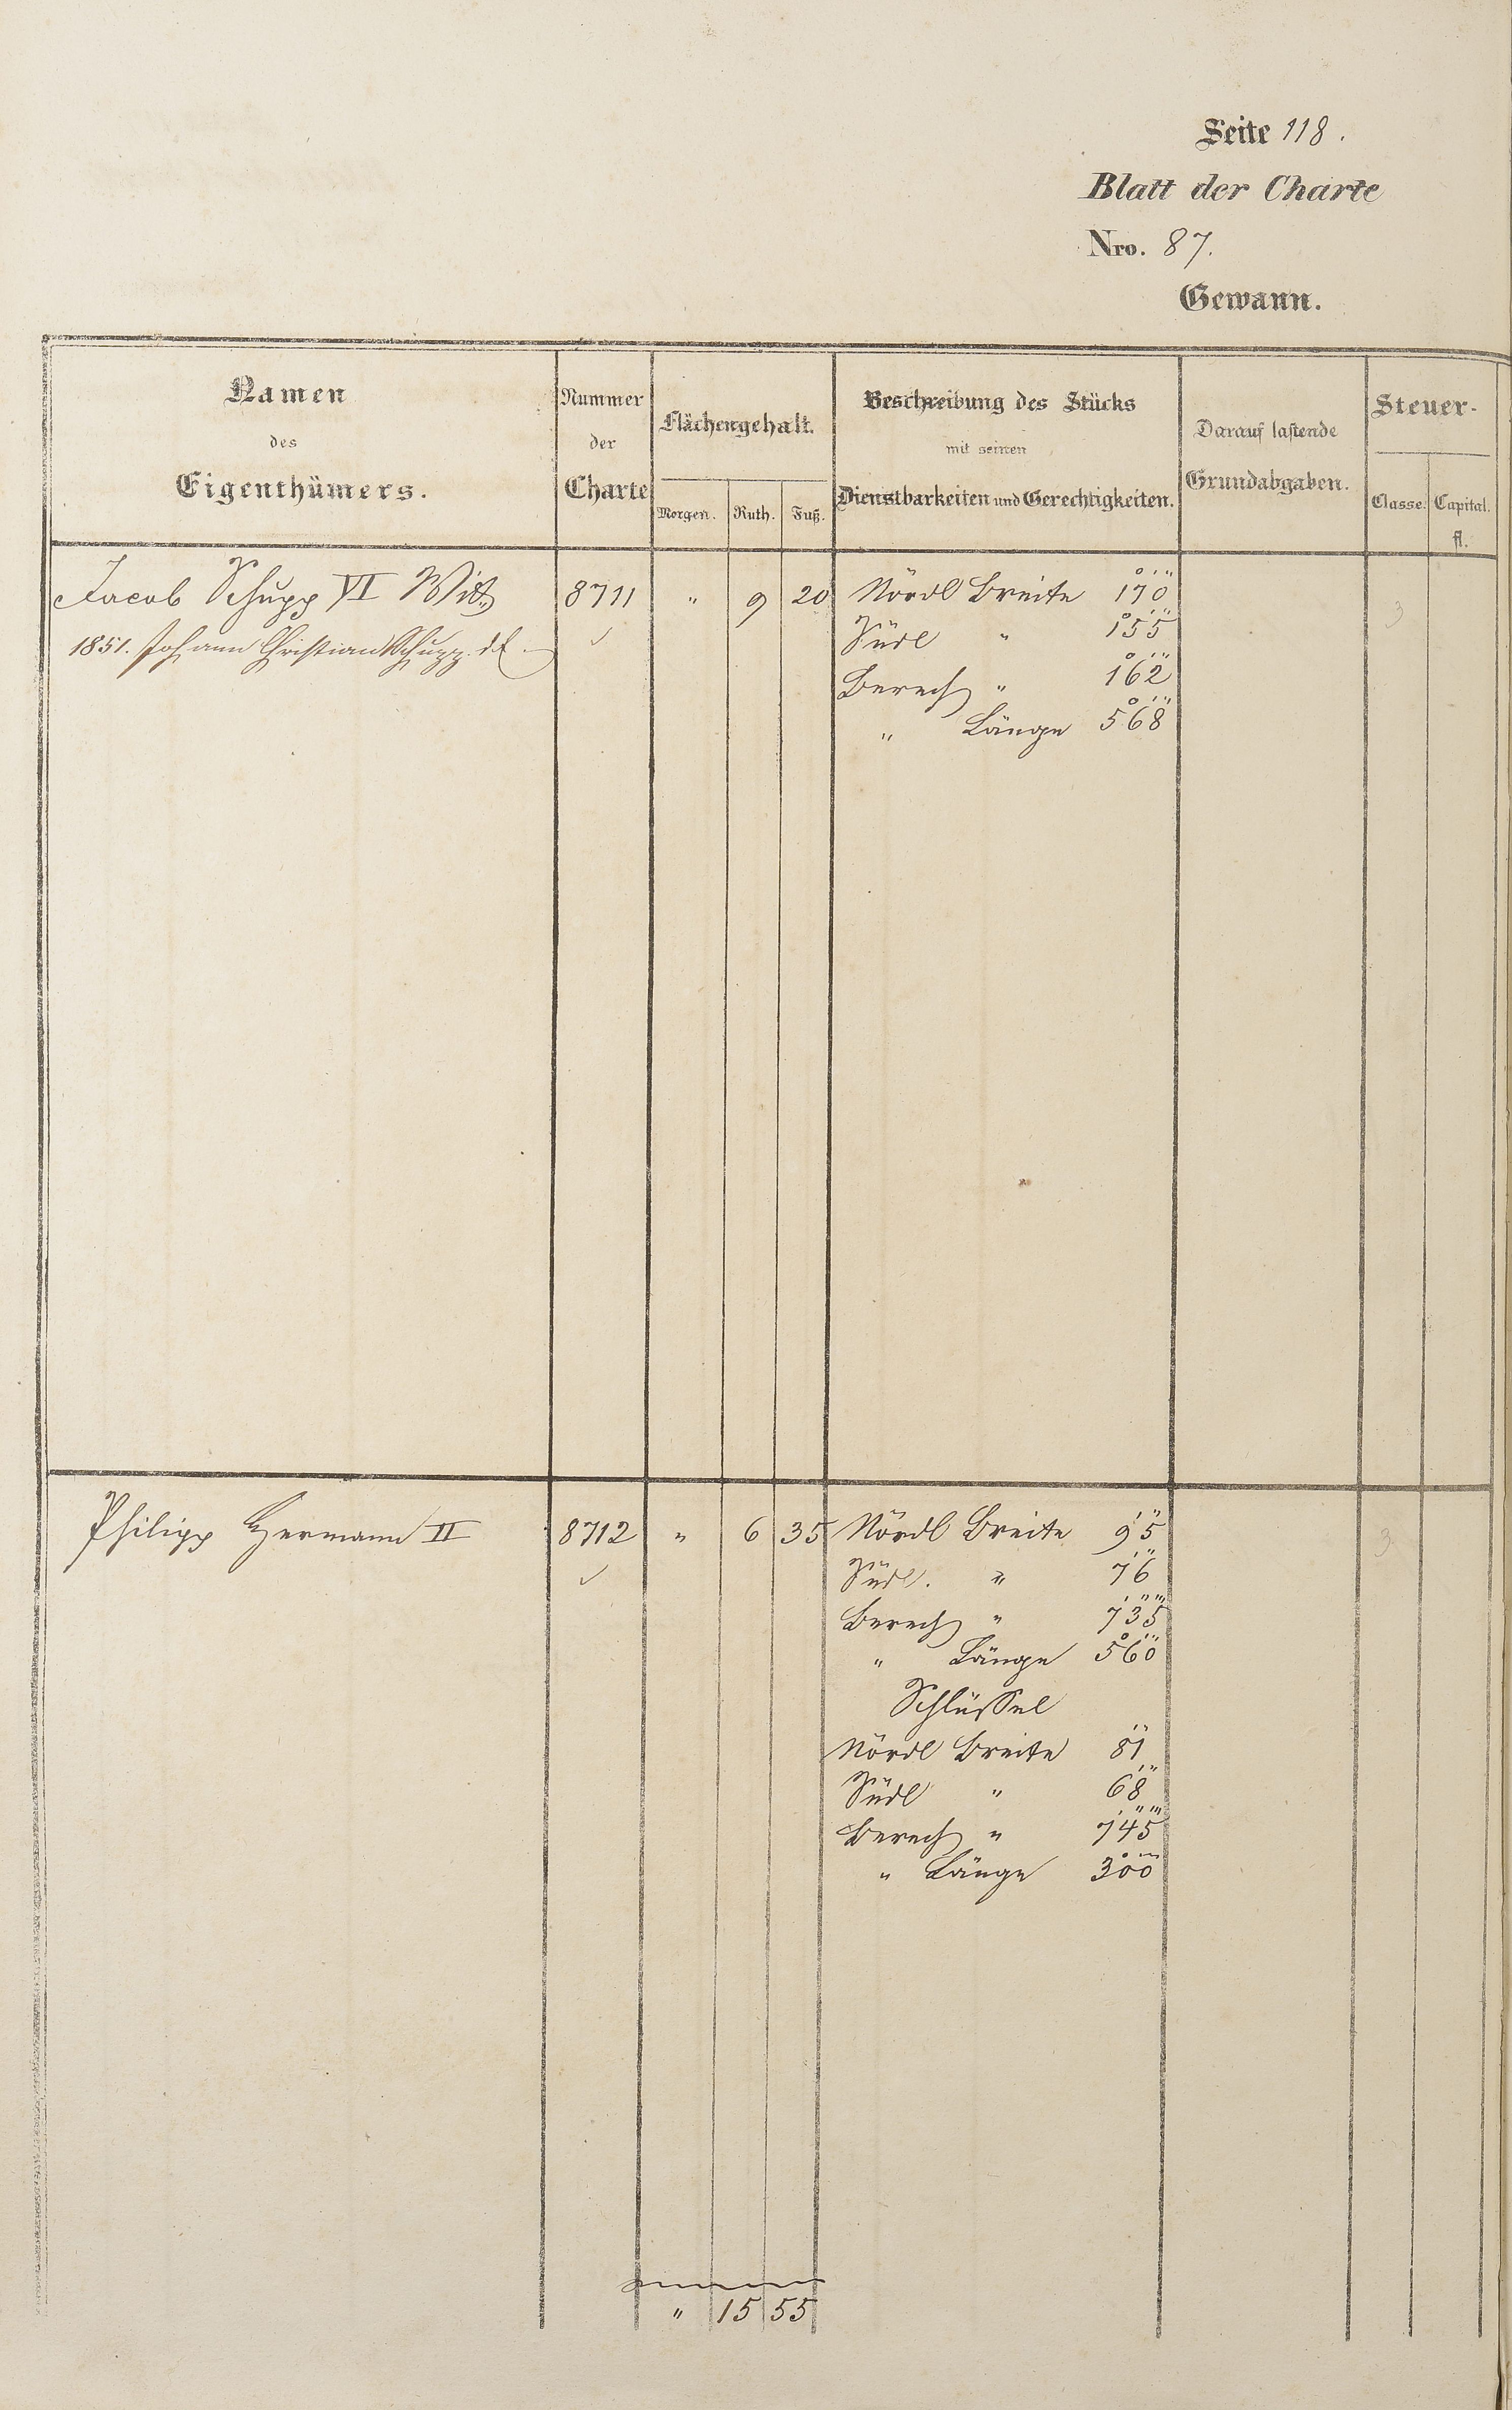 Seite 118.
Blatt der Charte
Nro. 87.
Gewann.
Namen
des
Eigenthümers.
Nummer
der
Charte
Flächengehalt.
Morgen. Ruth. Fuß.
Beschreibung des Stücks
mit seinen
Dienstbarkeiten und Gerechtigkeiten.
Darauf lastende
Grundabgaben.
Steuer-
Classe. Capital.
fl.
Jacob Schupp VI Witt. 8711 " 9 20 Nördl Breite 1°7'0" 3
1851. Johann Christian Schupp. ✓ Südl " 1°5'5"
Berech " 1°6'2"
" Länge 5°6'8"
Philipp Hermann II 8712 " 6 35 Nördl Breite 9'5" 3
✓ Südl. " 7'6"
Berech " 7'3"5‴
" Länge 5°6'0"
Schlüssel
Nördl Breite 8'1"
Südl " 6'8"
Berech " 7'4"5‴
" Länge 3°0'0"
" 15 55